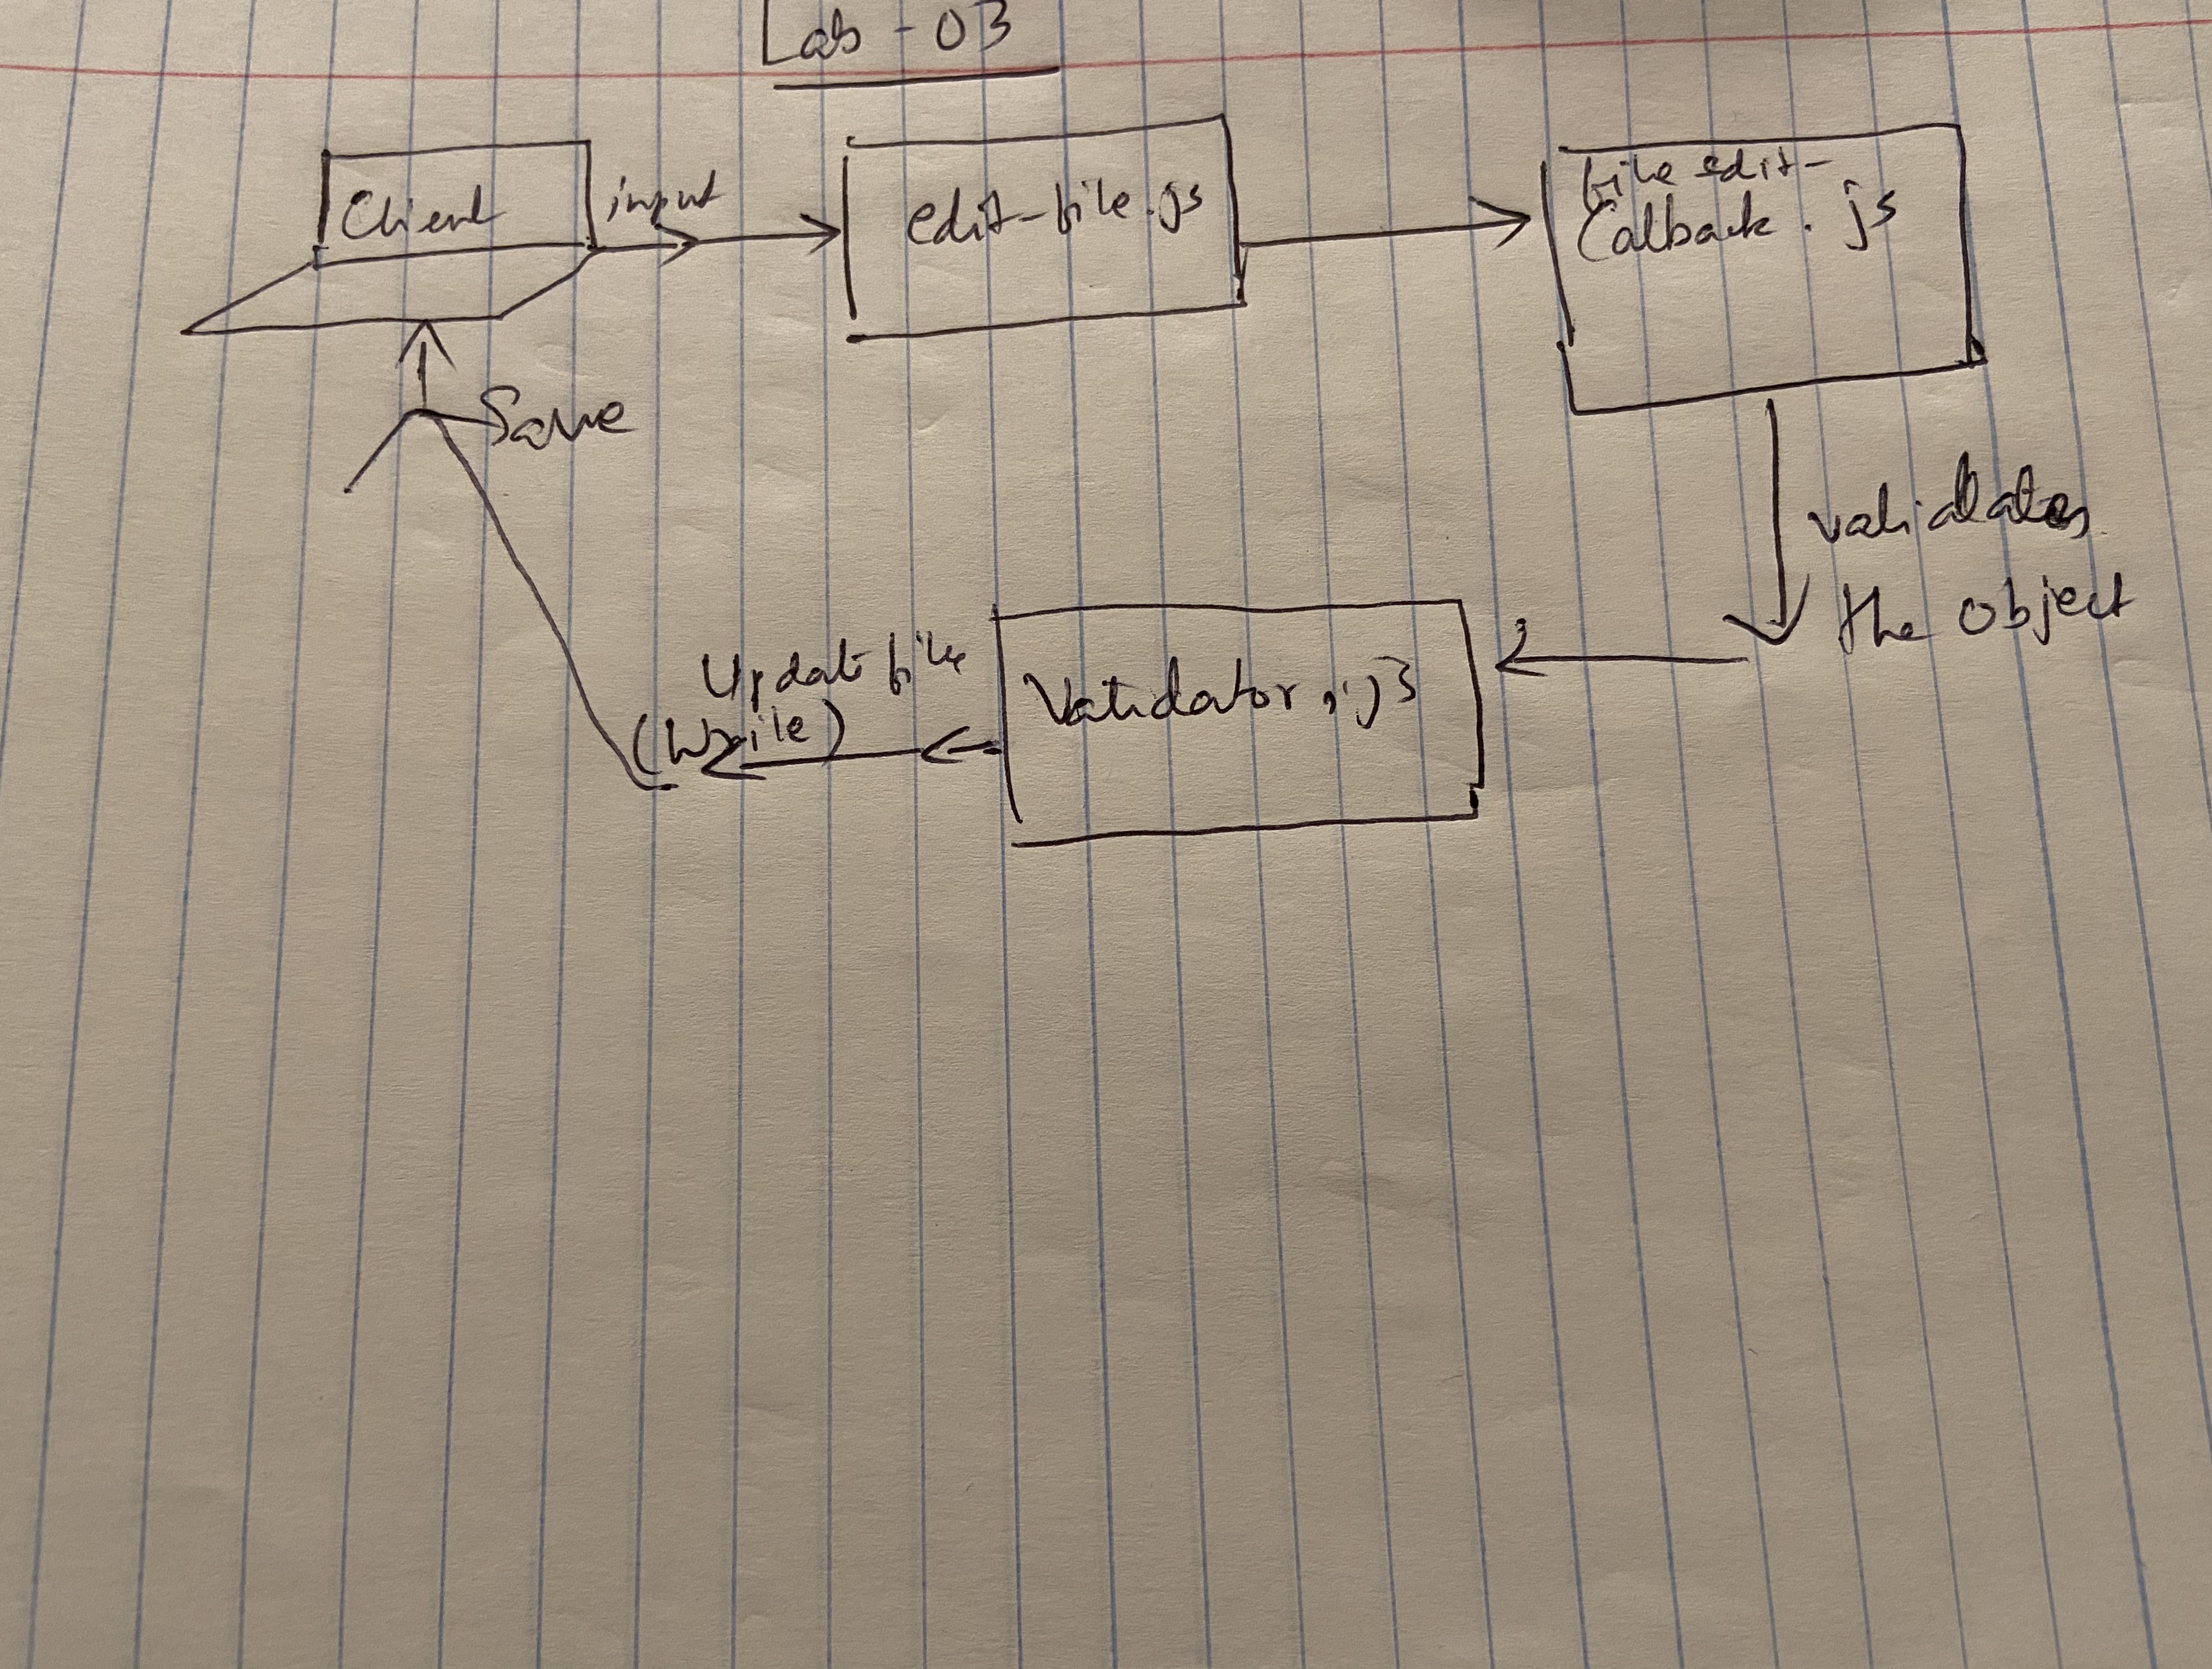 Lab - 03
Client
input
edit-file.js
file edit-
Callback.js
validates
the object
Validator.js
Update file
(Write)
Save